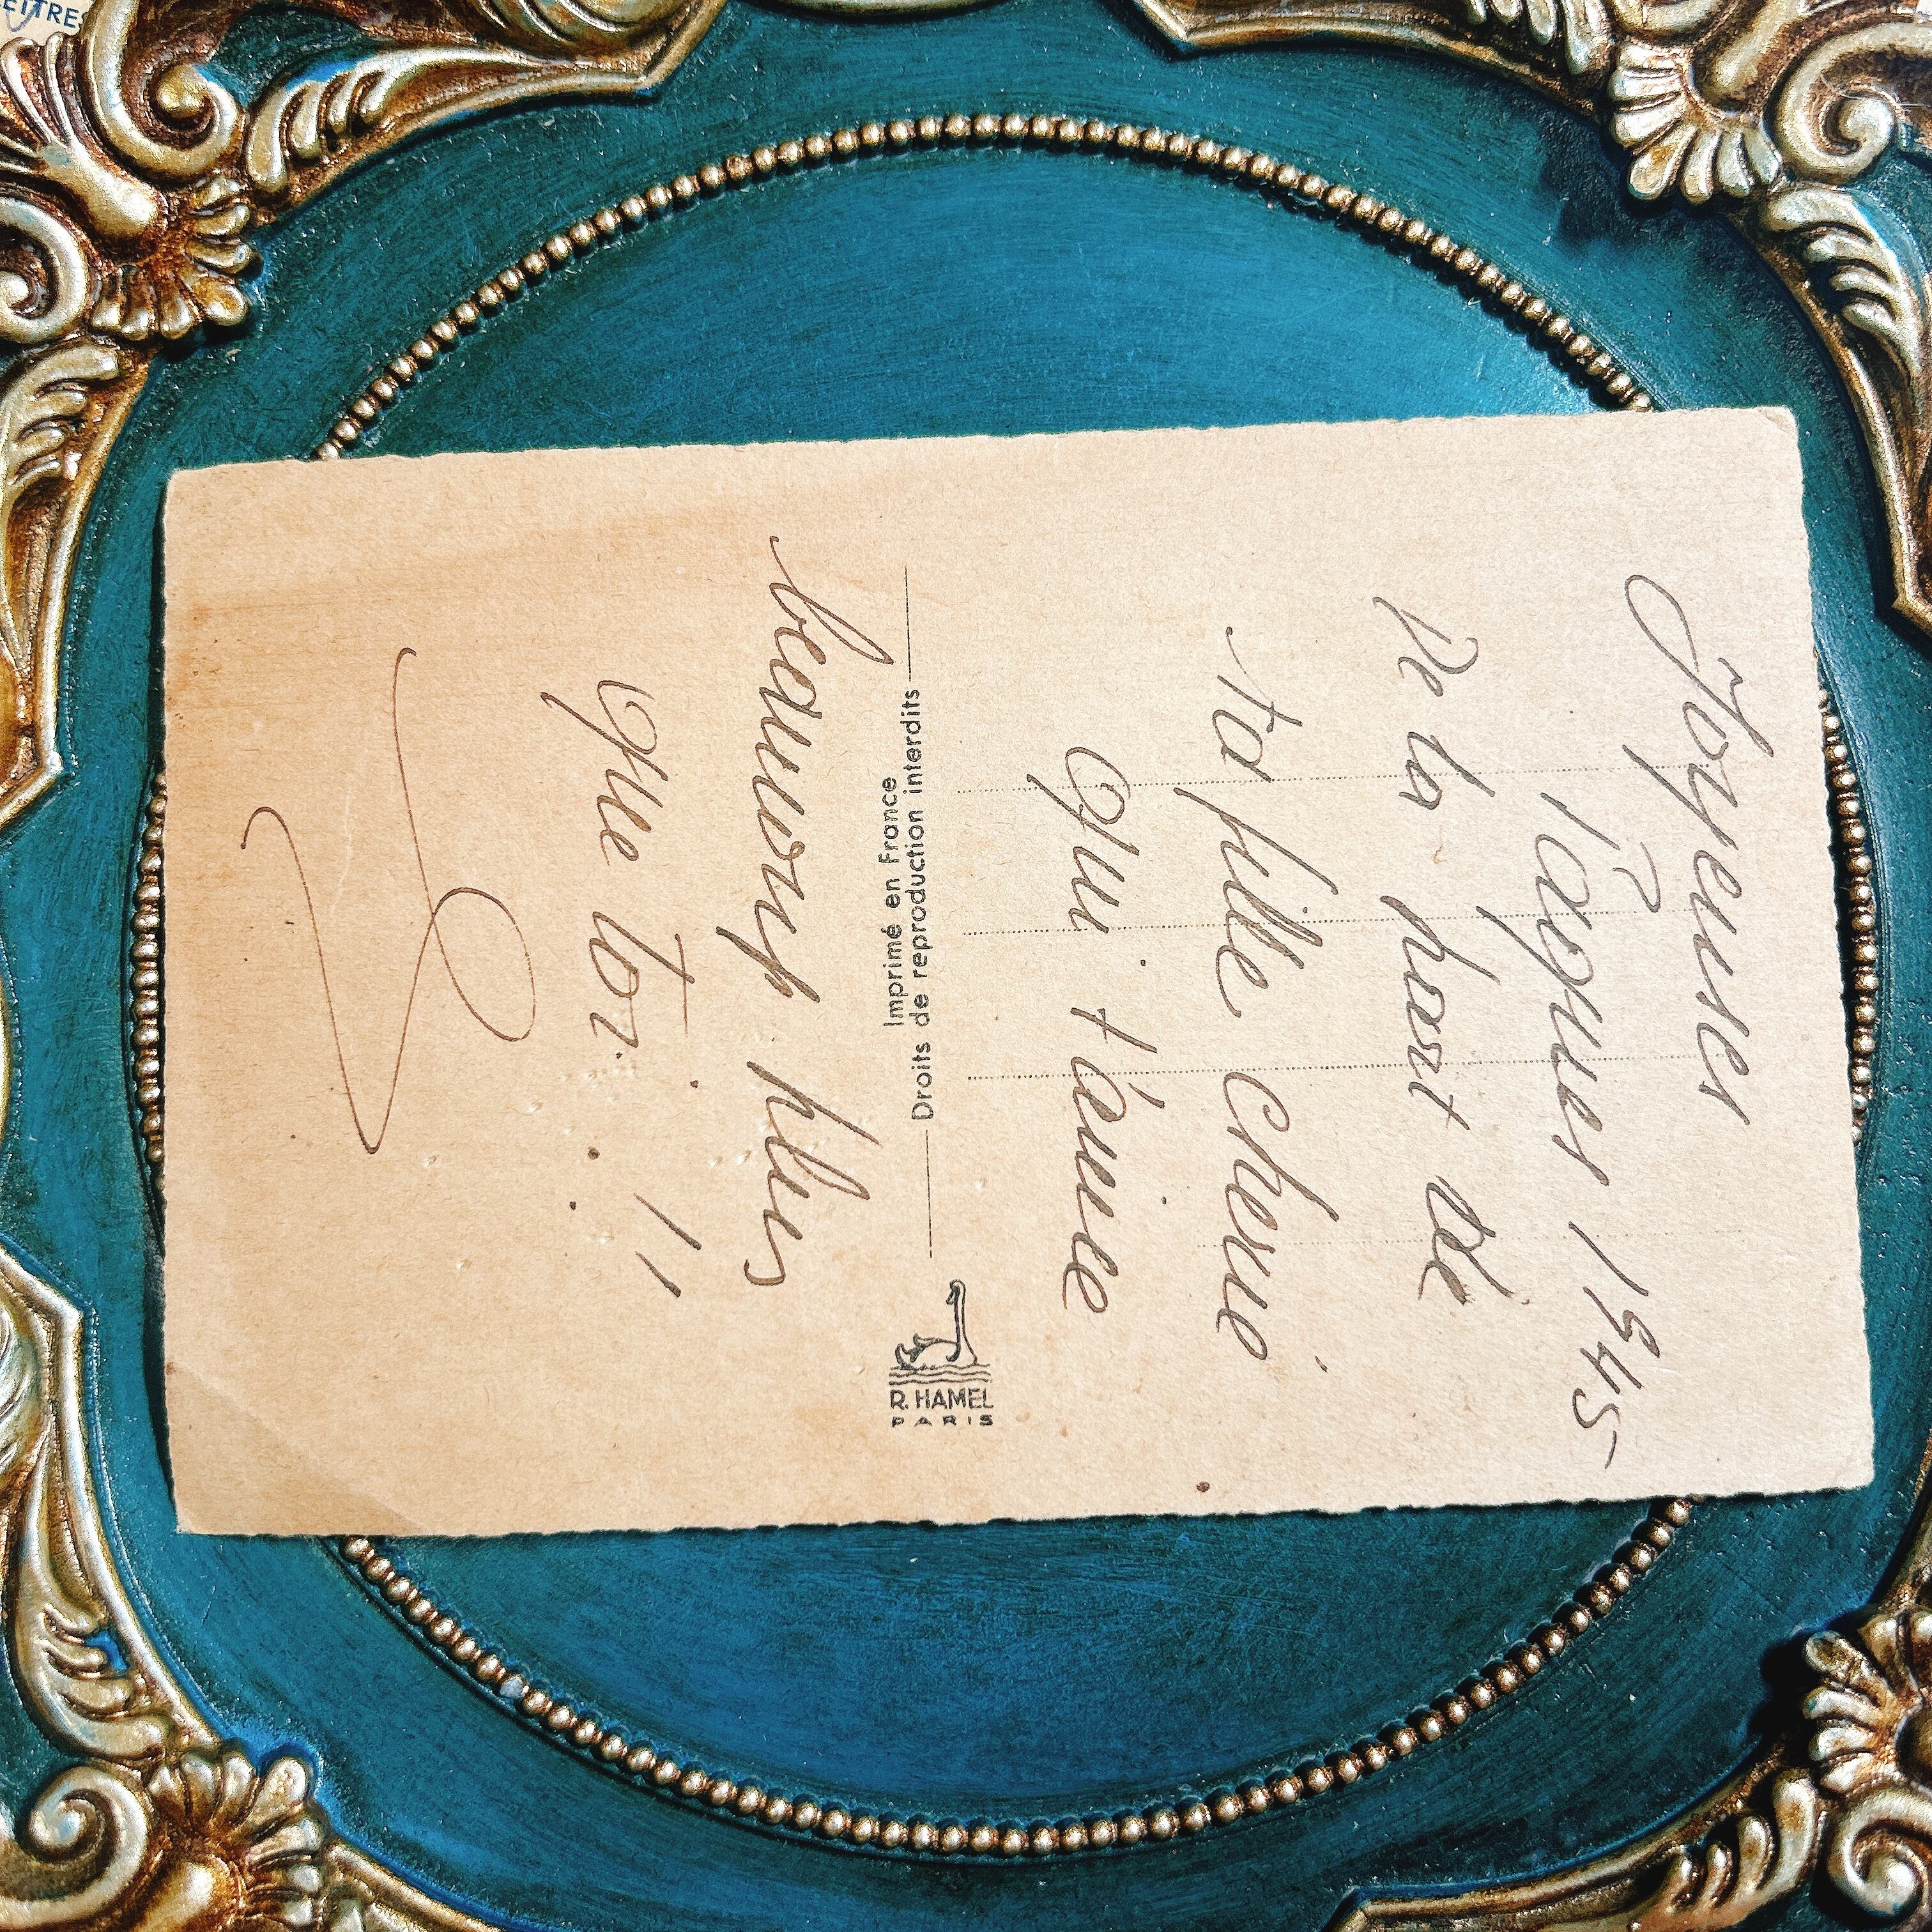 Joyeuses
Pâques 1945
De la part de
ta fille cherie
Qui t'aime
beaucoup plus
Que toi. . ! !
Imprimé en France
Droits de reproduction interdits
R. HAMEL
PARIS